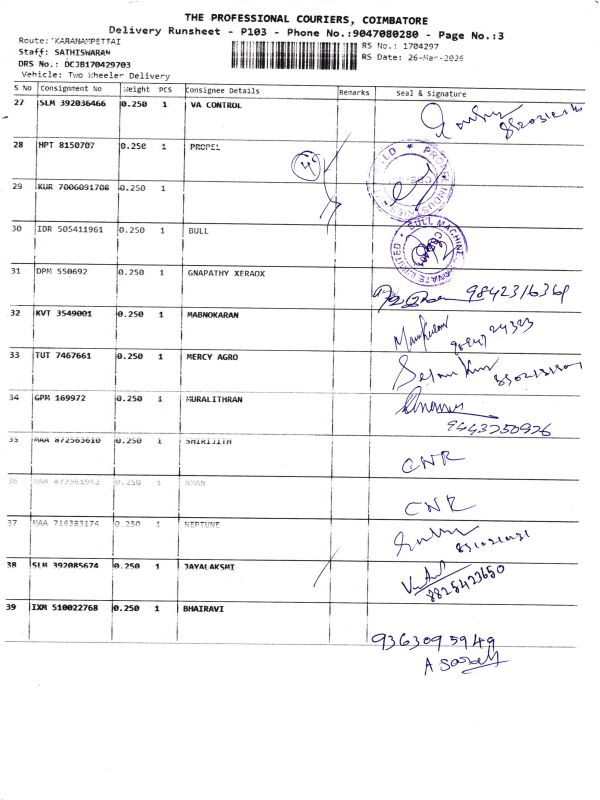 THE PROFESSIONAL COURIERS, COIMBATORE
Delivery Runsheet - P103 - Phone No.:9047080280 - Page No.:3
Route: KARANAMPETTAI
Staff: SATHISWARAN
DRS No.: DCJB170429703
Vehicle: Two Wheeler Delivery
RS No.: 1704297
RS Date: 26-Mar-2026
S No Consignment No Weight PCS Consignee Details Remarks Seal & Signature
27 SLM 392036466 0.250 1 VA CONTROL
28 HPT 8150707 0.250 1 PROPEL
29 KUR 7006091708 0.250 1
30 IDR 505411961 0.250 1 BULL
31 DPM 550692 0.250 1 GNAPATHY XERAOX 9842316369
32 KVT 3549001 0.250 1 MABNOKARAN
33 TUT 7467661 0.250 1 MERCY AGRO
34 GPM 169972 0.250 1 MURALITHRAN
9443250926
35 MAA 872563610 0.250 1 SHIRIJITH CNR
36 MAA 0.250 1 AMAN CNR
37 MAA 714383174 0.250 1 NEPTUNE
38 SLM 392085674 0.250 1 JAYALAKSMI 8825423650
39 IXM 510022768 0.250 1 BHAIRAVI
9363095949